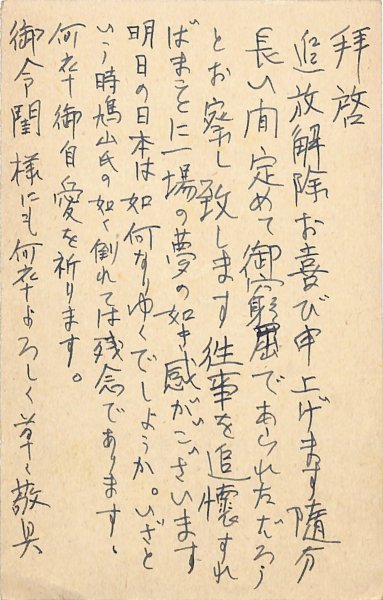 拝啓
追放解除お喜び申上げます随分
長い間定めて御窮屈であられただろう
とお察し致します往事を追懐すれ
ばまことに一場の夢の如き感がございます
明日の日本は如何なりゆくでしようか。いざと
いう時鳩山氏の如く倒れては残念であります、
何卒御自愛を祈ります。
御令閨様にも何卒よろしく草々敬具